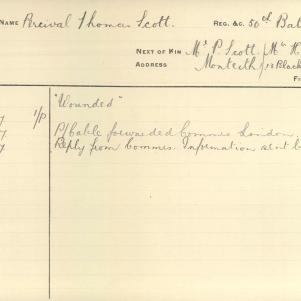 NAME Percival Thomas Scott. REG. &C. 50th Bat
NEXT OF KIN Mrs P. Scott
ADDRESS Monteith
1/P "Wounded"
P/Cable forwarded Commee London,
Reply from Commee. Information sent